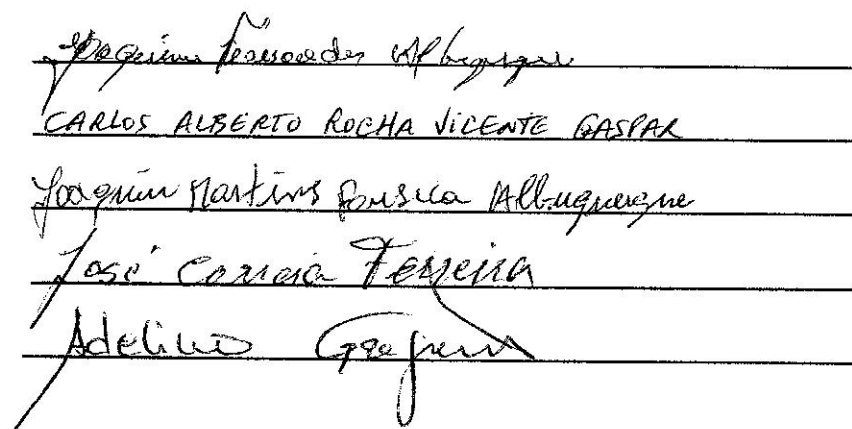 Joaquim Fernandes Albuquerque
CARLOS ALBERTO ROCHA VICENTE GASPAR
Joaquim Martins Fonseca Albuquerque
José Correia Ferreira
Adelino